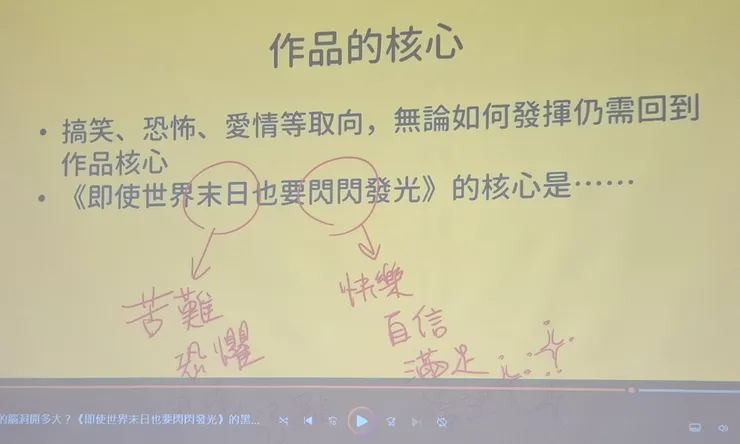 作品的核心
• 搞笑、恐怖、愛情等取向，無論如何發揮仍需回到
作品核心
• 《即使世界末日也要閃閃發光》的核心是……
苦難
恐懼
快樂
自信
滿足
的腦洞開多大？《即使世界末日也要閃閃發光》的黑...